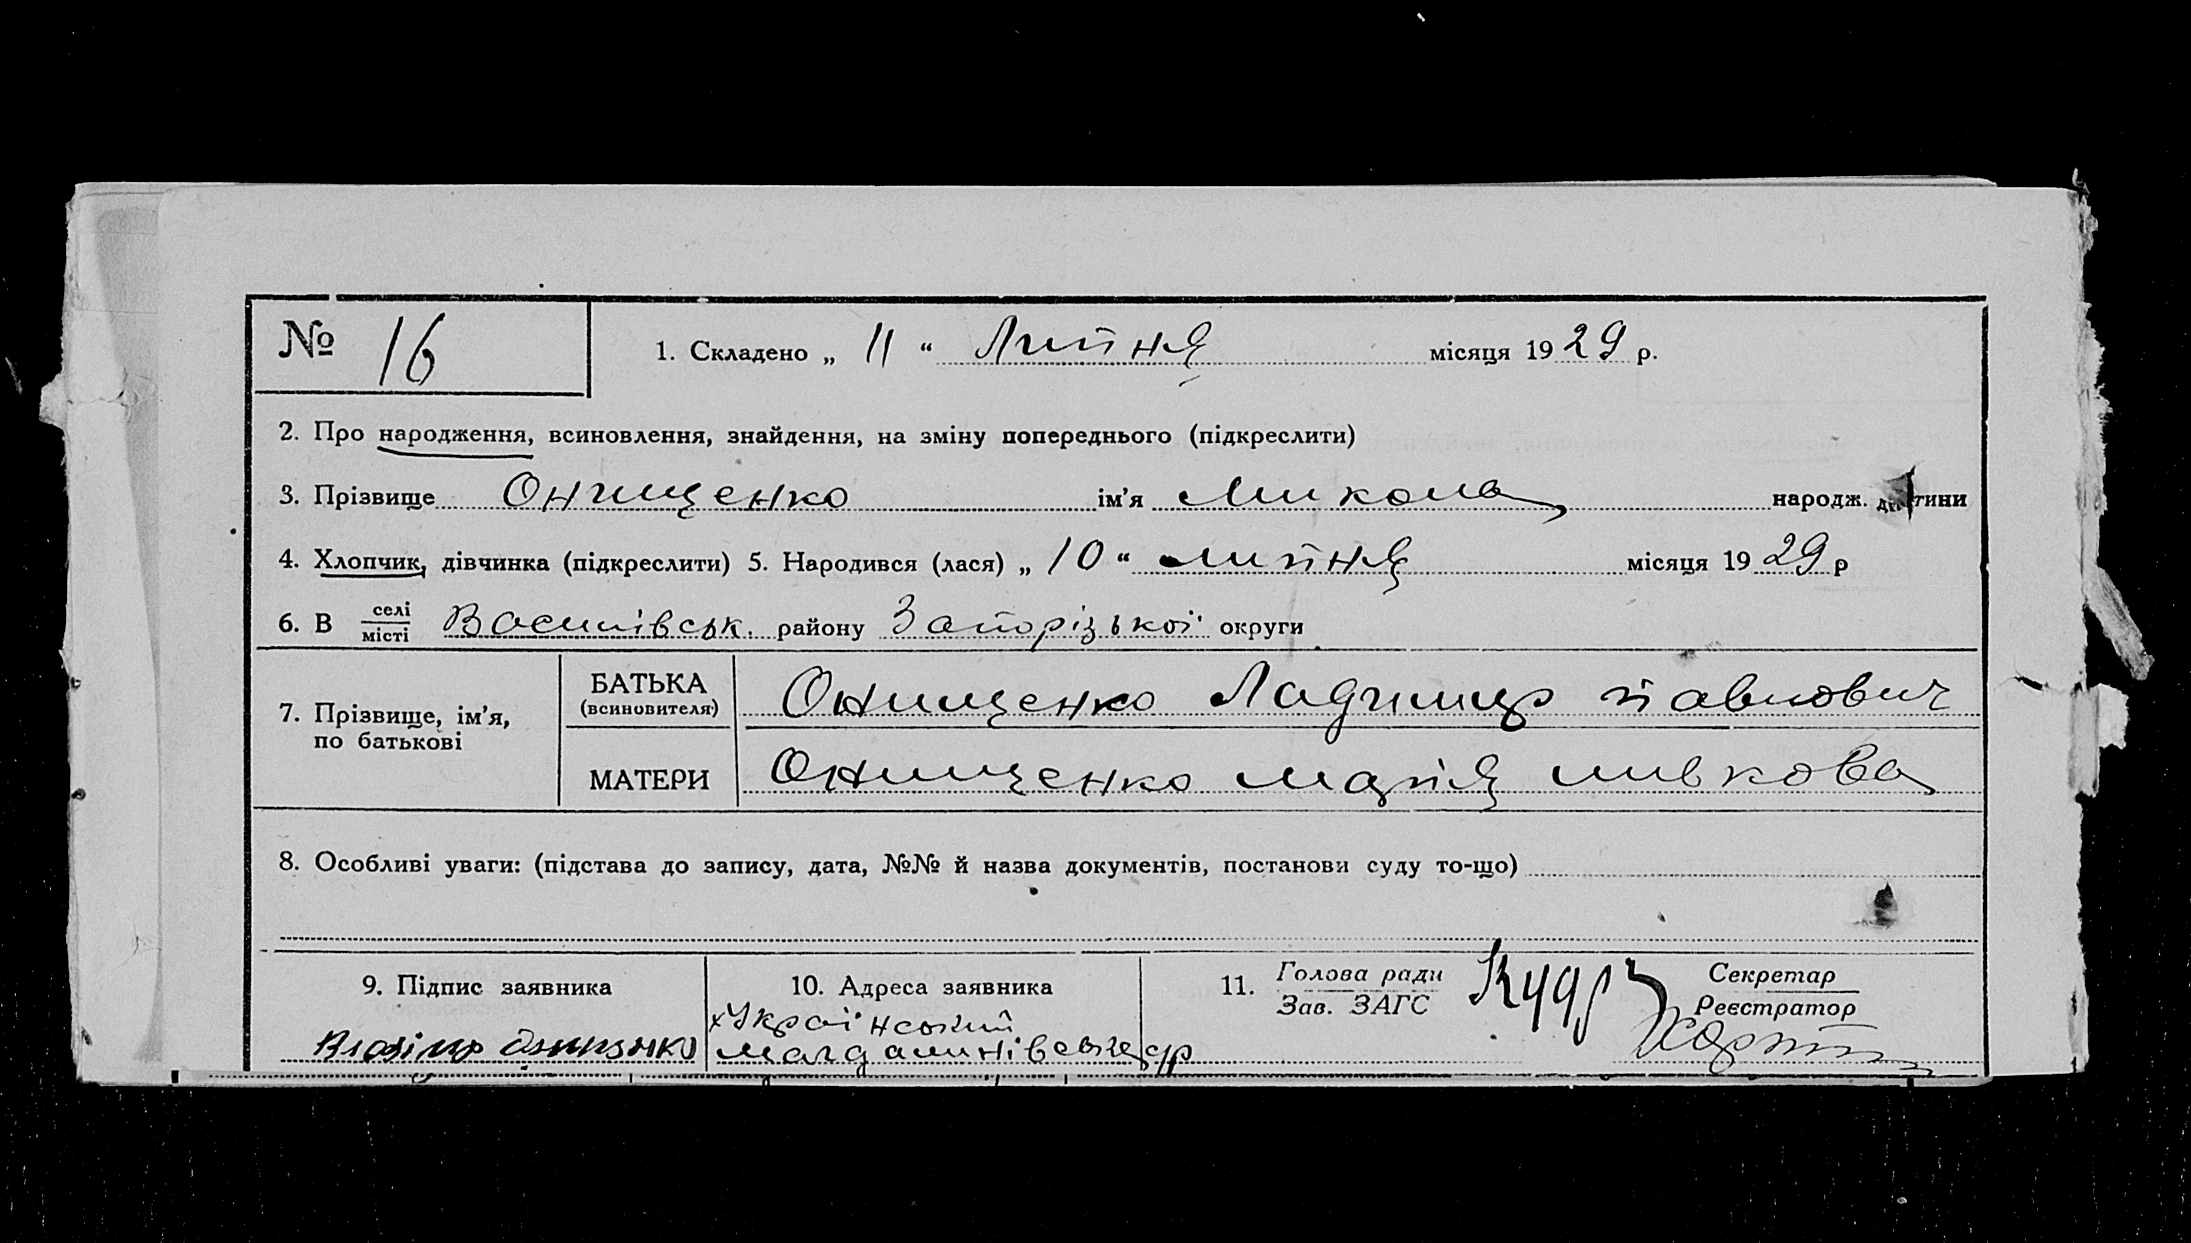 № 16
1. Складено „ 11 “ Липня місяця 1929 р.
2. Про народження, всиновлення, знайдення, на зміну попереднього (підкреслити)
3. Прізвище Онищенко ім’я Микола народж. дитини
4. Хлопчик, дівчинка (підкреслити) 5. Народився (лася) „ 10 “ липня місяця 1929 р
6. В селі / місті Василівськ. району Запорізької округи
7. Прізвище, ім’я, по батькові
БАТЬКА (всиновителя) Онищенко Ладимир Павлович
МАТЕРИ Онищенко Марія
8. Особливі уваги: (підстава до запису, дата, №№ й назва документів, постанови суду то-що)
9. Підпис заявника
10. Адреса заявника
11. Голова ради / Зав. ЗАГС
Секретар / Реєстратор
х Український